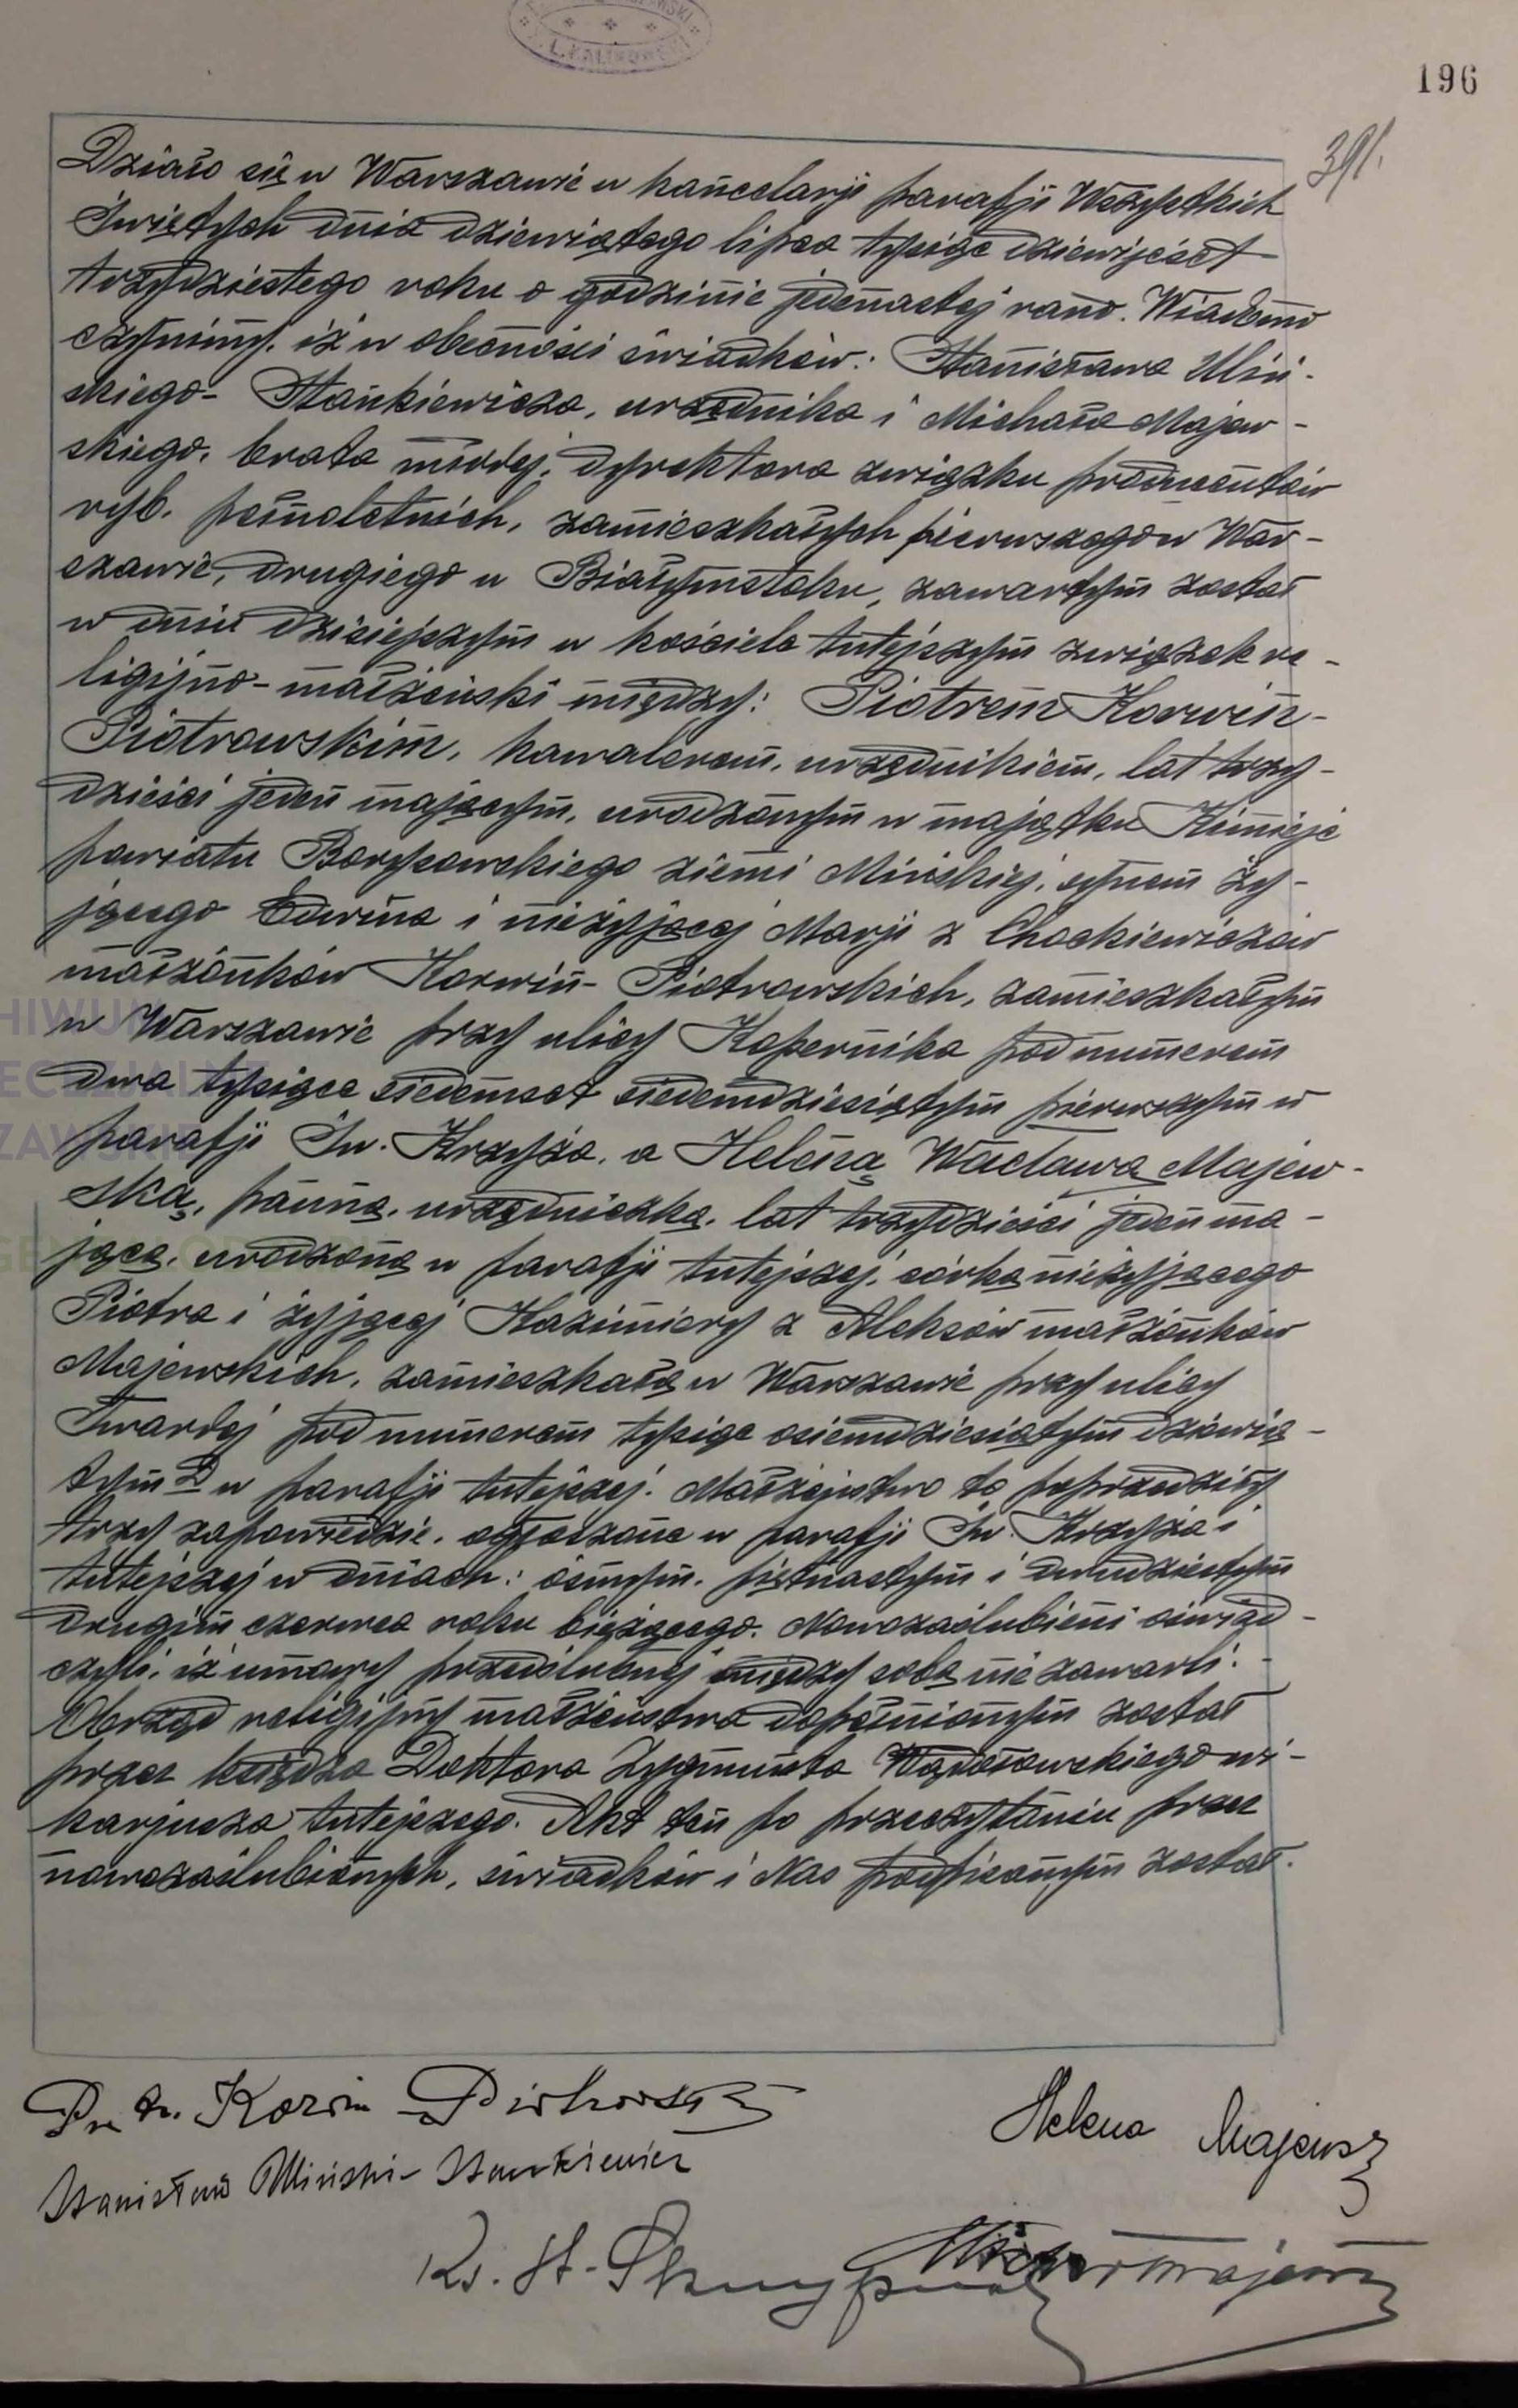 196
391.
Działo się w Warszawie w kancelarji parafji Wszystkich
Świętych dnia dziewiątego lipca tysiąc dziewięćset
trzydziestego roku o godzinie jedenastej rano. Wiadomo
czynimy, iż w obecności świadków: Stanisława Uliń-
skiego- Stankiewicza, urzędnika i Michała Majew-
skiego, brata młodej, dyrektora związku producentów
ryb, pełnoletnich, zamieszkałych pierwszego w War-
szawie, drugiego w Białymstoku, zawartym został
w dniu dzisiejszym w kościele tutejszym związek re-
ligijno-małżeński między: Piotrem Korwin-
Piotrowskim, kawalerem, urzędnikiem, lat trzy-
dzieści jeden mającym, urodzonym w majątku Kimieje
powiatu Borysowskiego ziemi Mińskiej, synem ży-
jącego Edwina i nieżyjącej Marji z Chockiewiczów
małżonków Korwin- Piotrowskich, zamieszkałym
w Warszawie przy ulicy Kopernika pod numerem
dwa tysiące siedemset siedemdziesiątym pierwszym w
parafji Św. Krzyża, a Heleną Wacławą Majew-
ską, panną, urzędniczką, lat trzydzieści jeden ma-
jącą, urodzoną w parafji tutejszej, córką nieżyjącego
Piotra i żyjącej Kazimiery z Aleksów małżonków
Majewskich, zamieszkałą w Warszawie przy ulicy
Twardej pod numerem tysiąc osiemdziesiątym dziewią-
tym D w parafji tutejszej. Małżeństwo to poprzedziły
trzy zapowiedzie, ogłoszone w parafji Św. Krzyża i
tutejszej w dniach: ósmym, piętnastym i dwudziestym
drugim czerwca roku bieżącego. Nowozaślubieni oświad-
czyli, iż umowy przedślubnej między sobą nie zawarli.
Obrząd religijny małżeństwa dopełnionym został
przez księdza Doktora Zygmunta Wądołowskiego wi-
karjusza tutejszego. Akt ten po przeczytaniu przez
nowozaślubionych, świadków i Nas podpisanym został.
Korwin Piotrowski
Helena Majewska
Stanisław Uliński- Stankiewicz
Ks. St.
Michał Majewski